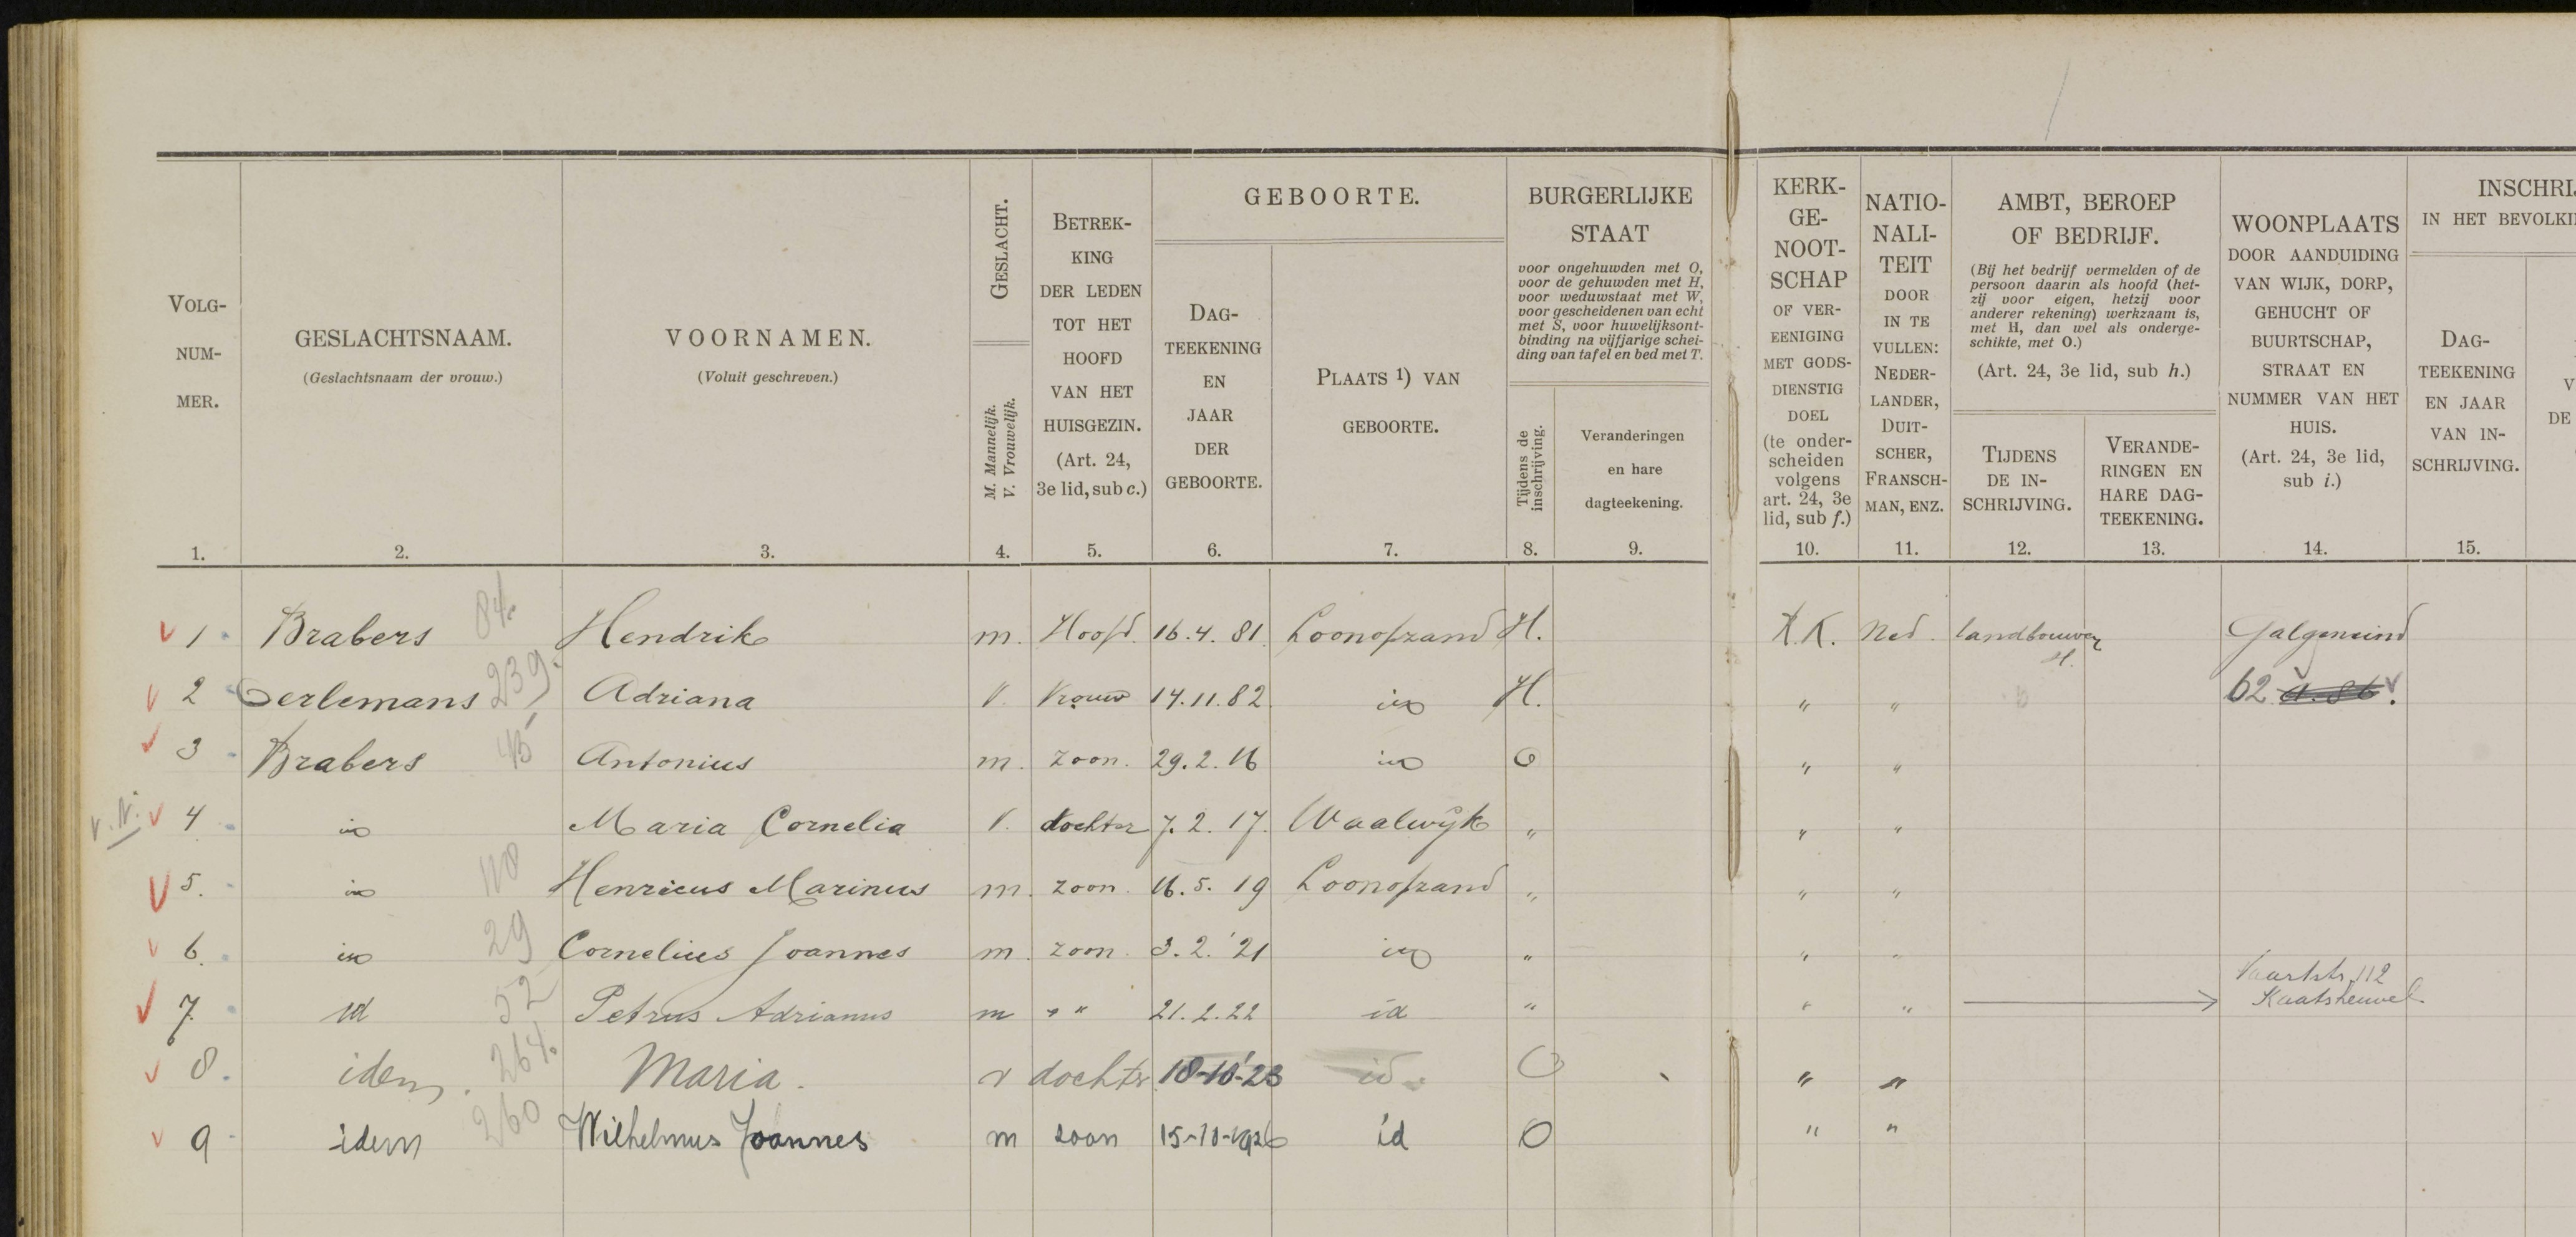 VOLG-
NUM-
MER.
1.
GESLACHTSNAAM.
(Geslachtsnaam der vrouw.)
2.
VOORNAMEN.
(Voluit geschreven.)
3.
GESLACHT.
M. Mannelijk.
V. Vrouwelijk.
4.
BETREK-
KING
DER LEDEN
TOT HET
HOOFD
VAN HET
HUISGEZIN.
(Art. 24,
3e lid, sub c.)
5.
GEBOORTE.
DAG-
TEEKENING
EN
JAAR
DER
GEBOORTE.
6.
PLAATS 1) VAN
GEBOORTE.
7.
BURGERLIJKE
STAAT
voor ongehuwden met O,
voor de gehuwden met H,
voor weduwstaat met W,
voor gescheidenen van echt
met S, voor huwelijksont-
binding na vijfjarige schei-
ding van tafel en bed met T.
Tijdens de
inschrijving.
8.
Veranderingen
en hare
dagteekening.
9.
KERK-
GE-
NOOT-
SCHAP
OF VER-
EENIGING
MET GODS-
DIENSTIG
DOEL
(te onder-
scheiden
volgens
art. 24, 3e
lid, sub f.)
10.
NATIO-
NALI-
TEIT
DOOR
IN TE
VULLEN:
NEDER-
LANDER,
DUIT-
SCHER,
FRANSCH-
MAN, ENZ.
11.
AMBT, BEROEP
OF BEDRIJF.
(Bij het bedrijf vermelden of de
persoon daarin als hoofd (het-
zij voor eigen, hetzij voor
anderer rekening) werkzaam is,
met H, dan wel als onderge-
schikte, met O.)
(Art. 24, 3e lid, sub h.)
TIJDENS
DE IN-
SCHRIJVING.
12.
VERANDE-
RINGEN EN
HARE DAG-
TEEKENING.
13.
WOONPLAATS
DOOR AANDUIDING
VAN WIJK, DORP,
GEHUCHT OF
BUURTSCHAP,
STRAAT EN
NUMMER VAN HET
HUIS.
(Art. 24, 3e lid,
sub i.)
14.
INSCHRIJ
IN HET BEVOLKI
DAG-
TEEKENING
EN JAAR
VAN IN-
SCHRIJVING.
15.
V
DE
1 Brabers 84 Hendrik m. Hoofd 16.4.81 Loonopzand H. R.K. Ned. landbouwer H. Galgeneind
2 Oerlemans 239 Adriana V. Vrouw 14.11.82 id H. " " 62
3 Brabers 45 Antonius m. zoon. 29.2.16 id O " "
v.N. 4 id Maria Cornelia V. dochter 7.2.17. Waalwijk " " "
5. id 110 Henricus Marinus m. zoon. 16.5.19 Loonopzand " " "
6. id 29 Cornelius Joannes m. zoon. 3.2.'21 id " " "
7. id 52 Petrus Adrianus m " " 21.2.22 id " " " Vaartstr. 112
Kaatsheuvel
8. idem. 264. Maria. v dochter 18-10-'23 id. O " "
9 idem 260 Wilhelmus Joannes m zoon 15-10-1926 id O " "